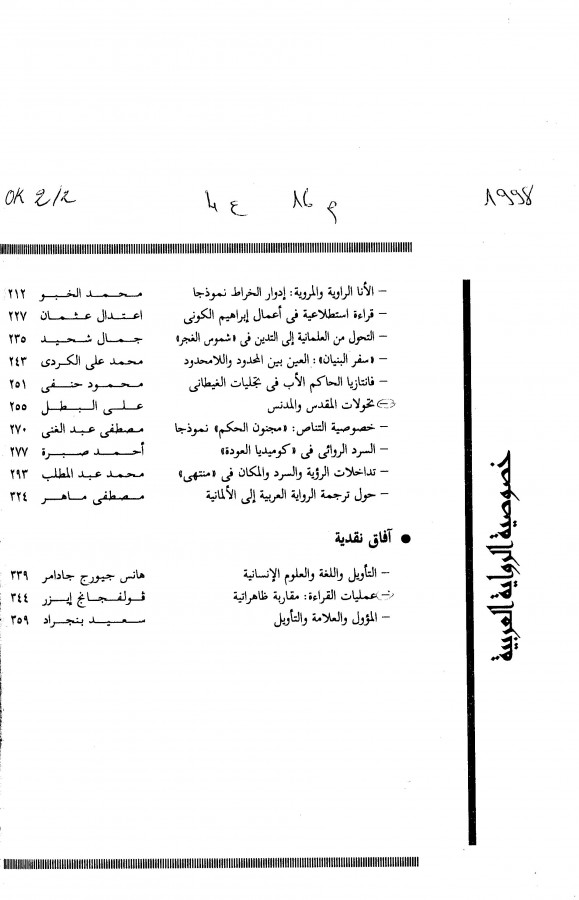 OK 2/2 ع 4 م 16 1998
– الأنا الراوية والمروية: إدوار الخراط نموذجا محمد الخبو ٢١٢
– قراءة استطلاعية فى أعمال إبراهيم الكونى اعتدال عثمان ٢٢٧
– التحول من العلمانية إلى التدين فى «شموس الغجر» جمال شحيد ٢٣٥
– «سفر البنيان»: العين بين المحدود واللامحدود محمد على الكردى ٢٤٣
– فانتازيا الحاكم الأب فى تجليات الغيطانى محمود حنفى ٢٥١
– تحولات المقدس والمدنس على البطل ٢٥٥
– خصوصية التناص: «مجنون الحكم» نموذجا مصطفى عبد الغنى ٢٧٠
– السرد الروائى فى «كوميديا العودة» أحمد صبرة ٢٧٧
– تداخلات الرؤية والسرد والمكان فى «منتهى» محمد عبد المطلب ٢٩٣
– حول ترجمة الرواية العربية إلى الألمانية مصطفى ماهر ٣٢٤
● آفاق نقدية
– التأويل واللغة والعلوم الإنسانية هانس جيورج جادامر ٣٣٩
– عمليات القراءة: مقاربة ظاهراتية ڤولفجانج إيزر ٣٤٤
– المؤول والعلامة والتأويل سعيد بنجراد ٣٥٩
خصوصية الرواية العربية